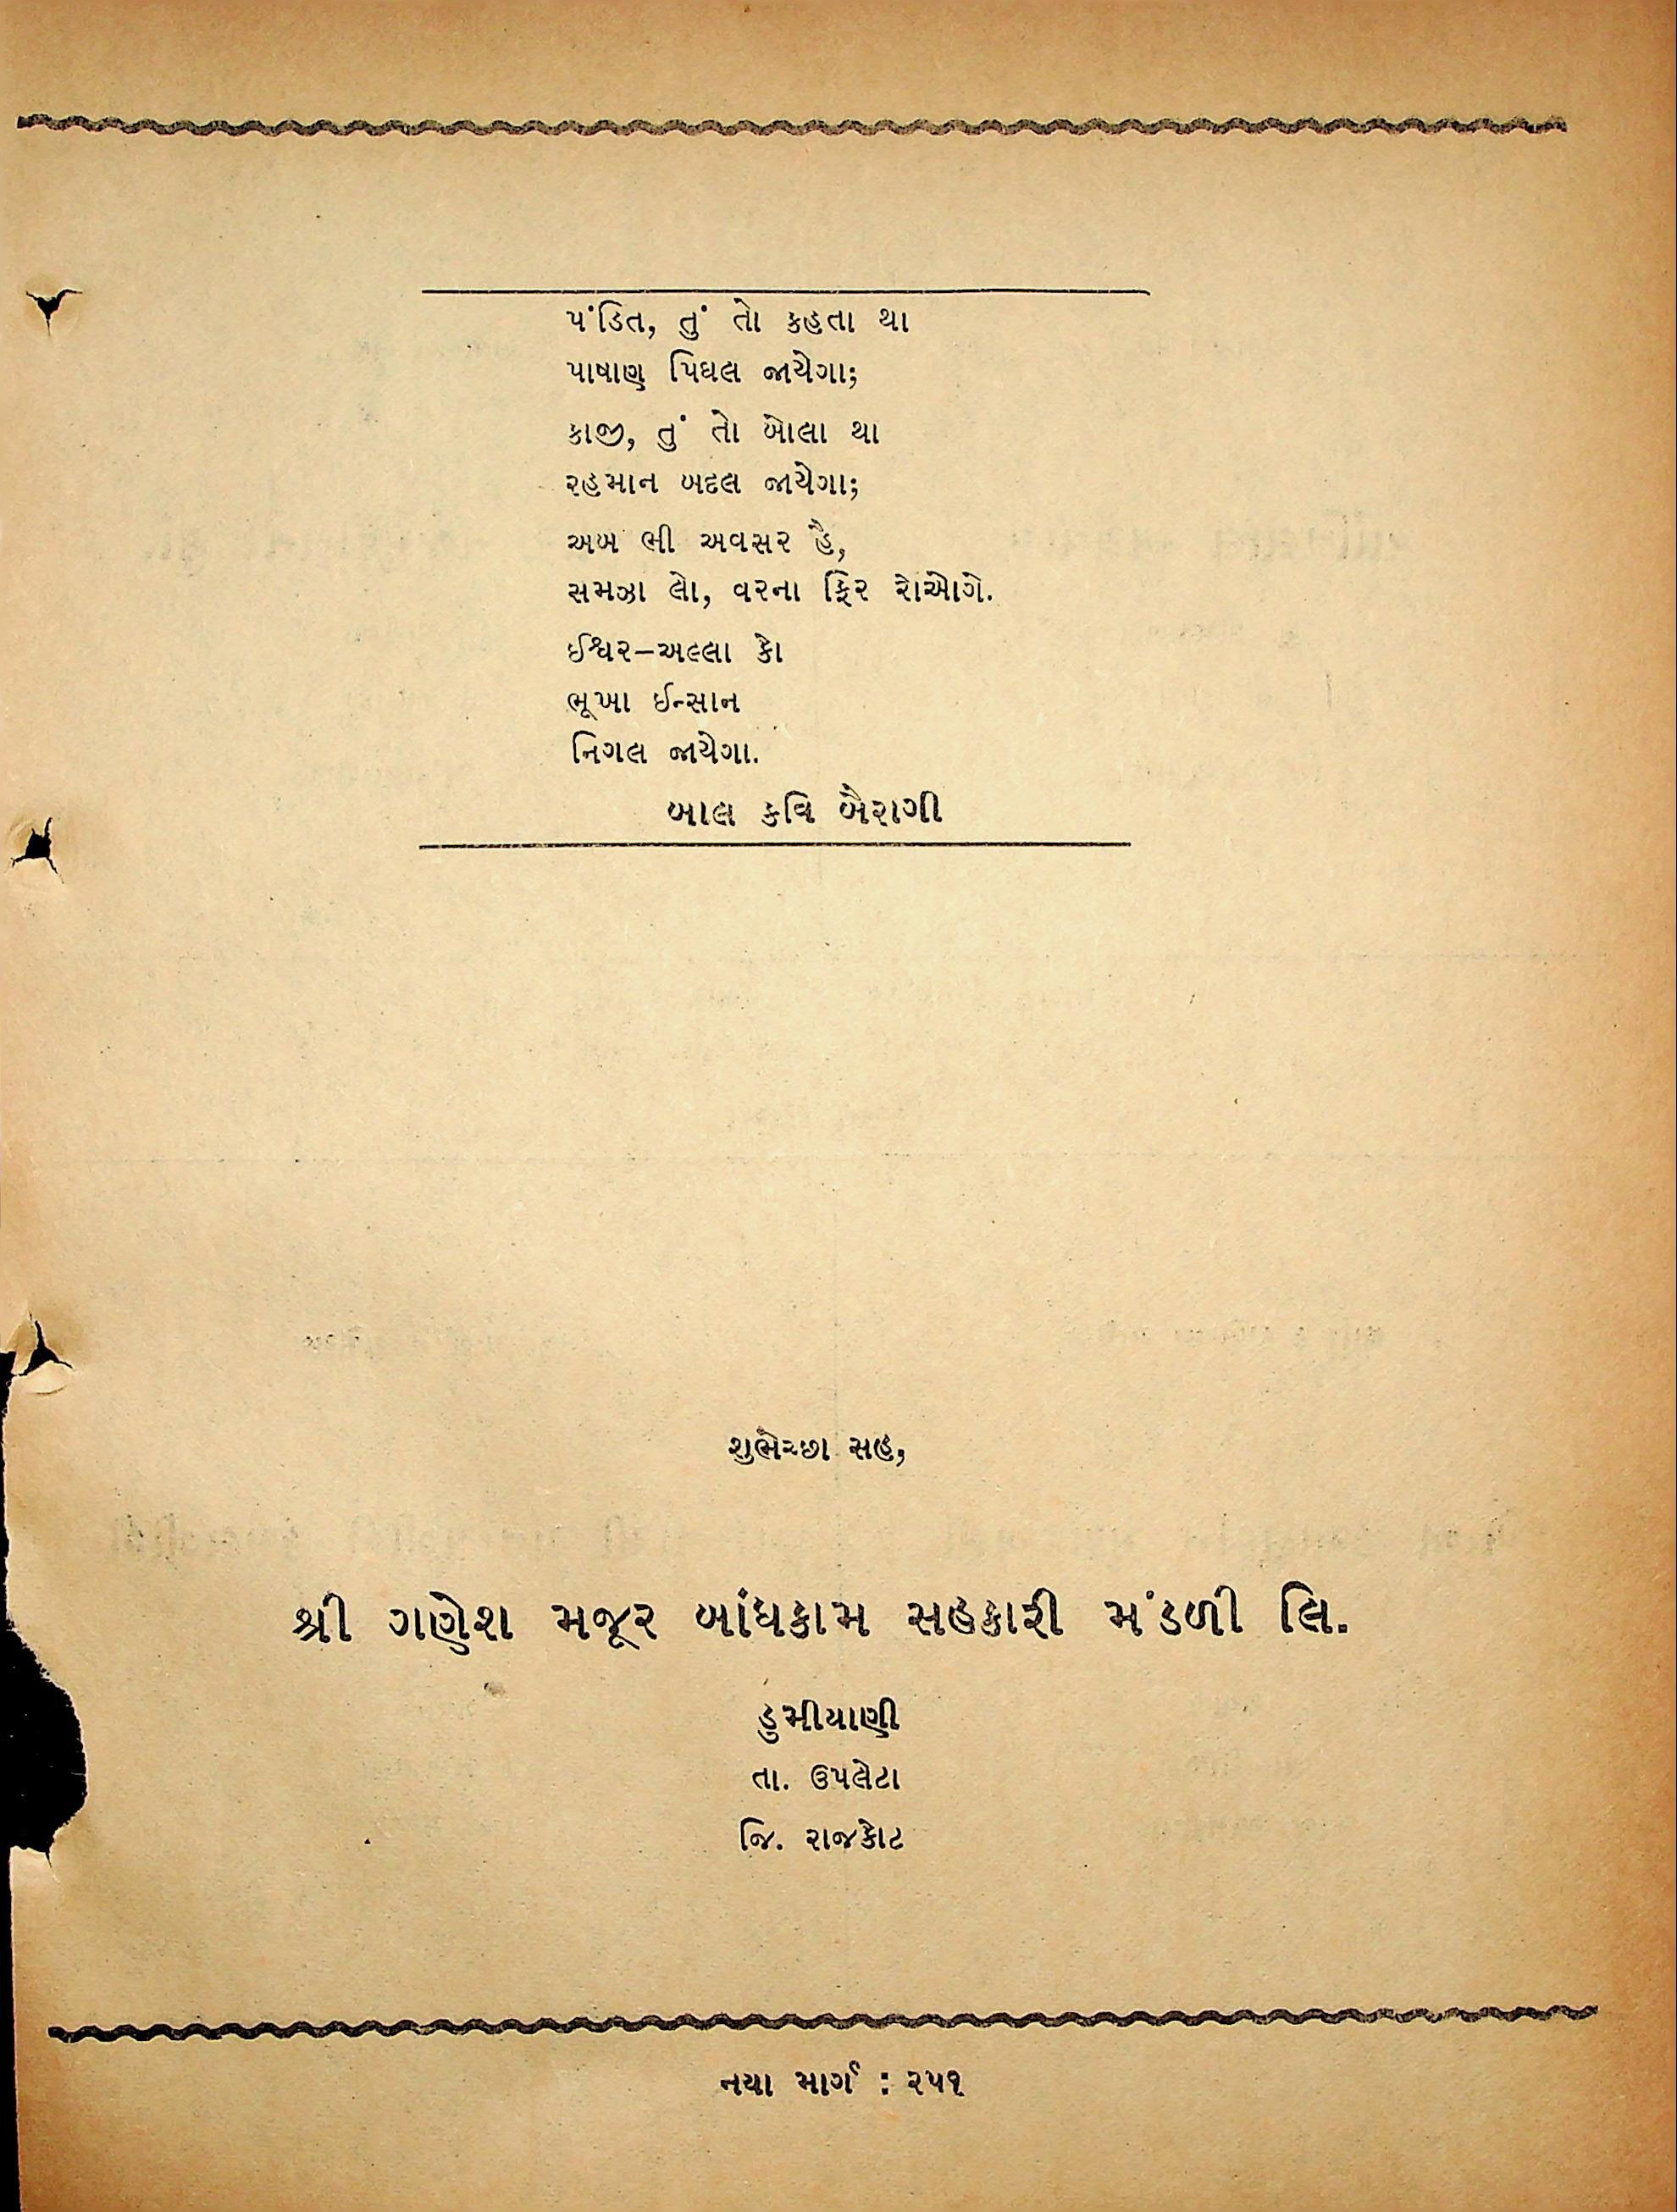 પંડિત, તું તો કહતા થા
પાષાણ પિઘલ જાયેગા;
કાજી, તું તો બોલા થા
રહમાન બદલ જાયેગા;
અબ ભી અવસર હૈ,
સમઝા લો, વરના ફિર રોઓગે.
ઈશ્વર–અલ્લા કો
ભૂખા ઈન્સાન
નિગલ જાયેગા.
બાલ કવિ બૈરાગી
શુભેચ્છા સહ,
શ્રી ગણેશ મજૂર બાંધકામ સહકારી મંડળી લિ.
ડુમીયાણી
તા. ઉપલેટા
જિ. રાજકોટ
નયા માર્ગ : ૨૫૧